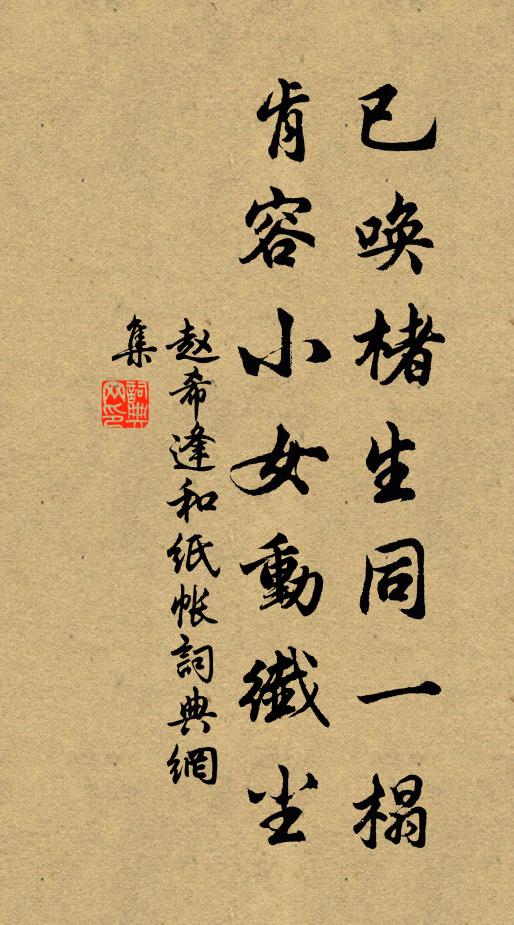 已唤楮生同一榻
肯容小女動纖尘
赵希逢和纸帐詞典網
集
詞典
网印